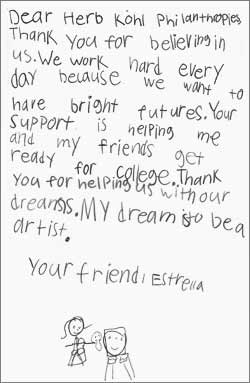 Dear Herb Kohl Philanthropies
Thank you for believing in
us. We work hard every
day because we want to
have bright futures. Your
support is helping me
and my friends get
ready for college. Thank
you for helping us with our
dreams. MY dream is to be a
artist.
Your friend, Estrella